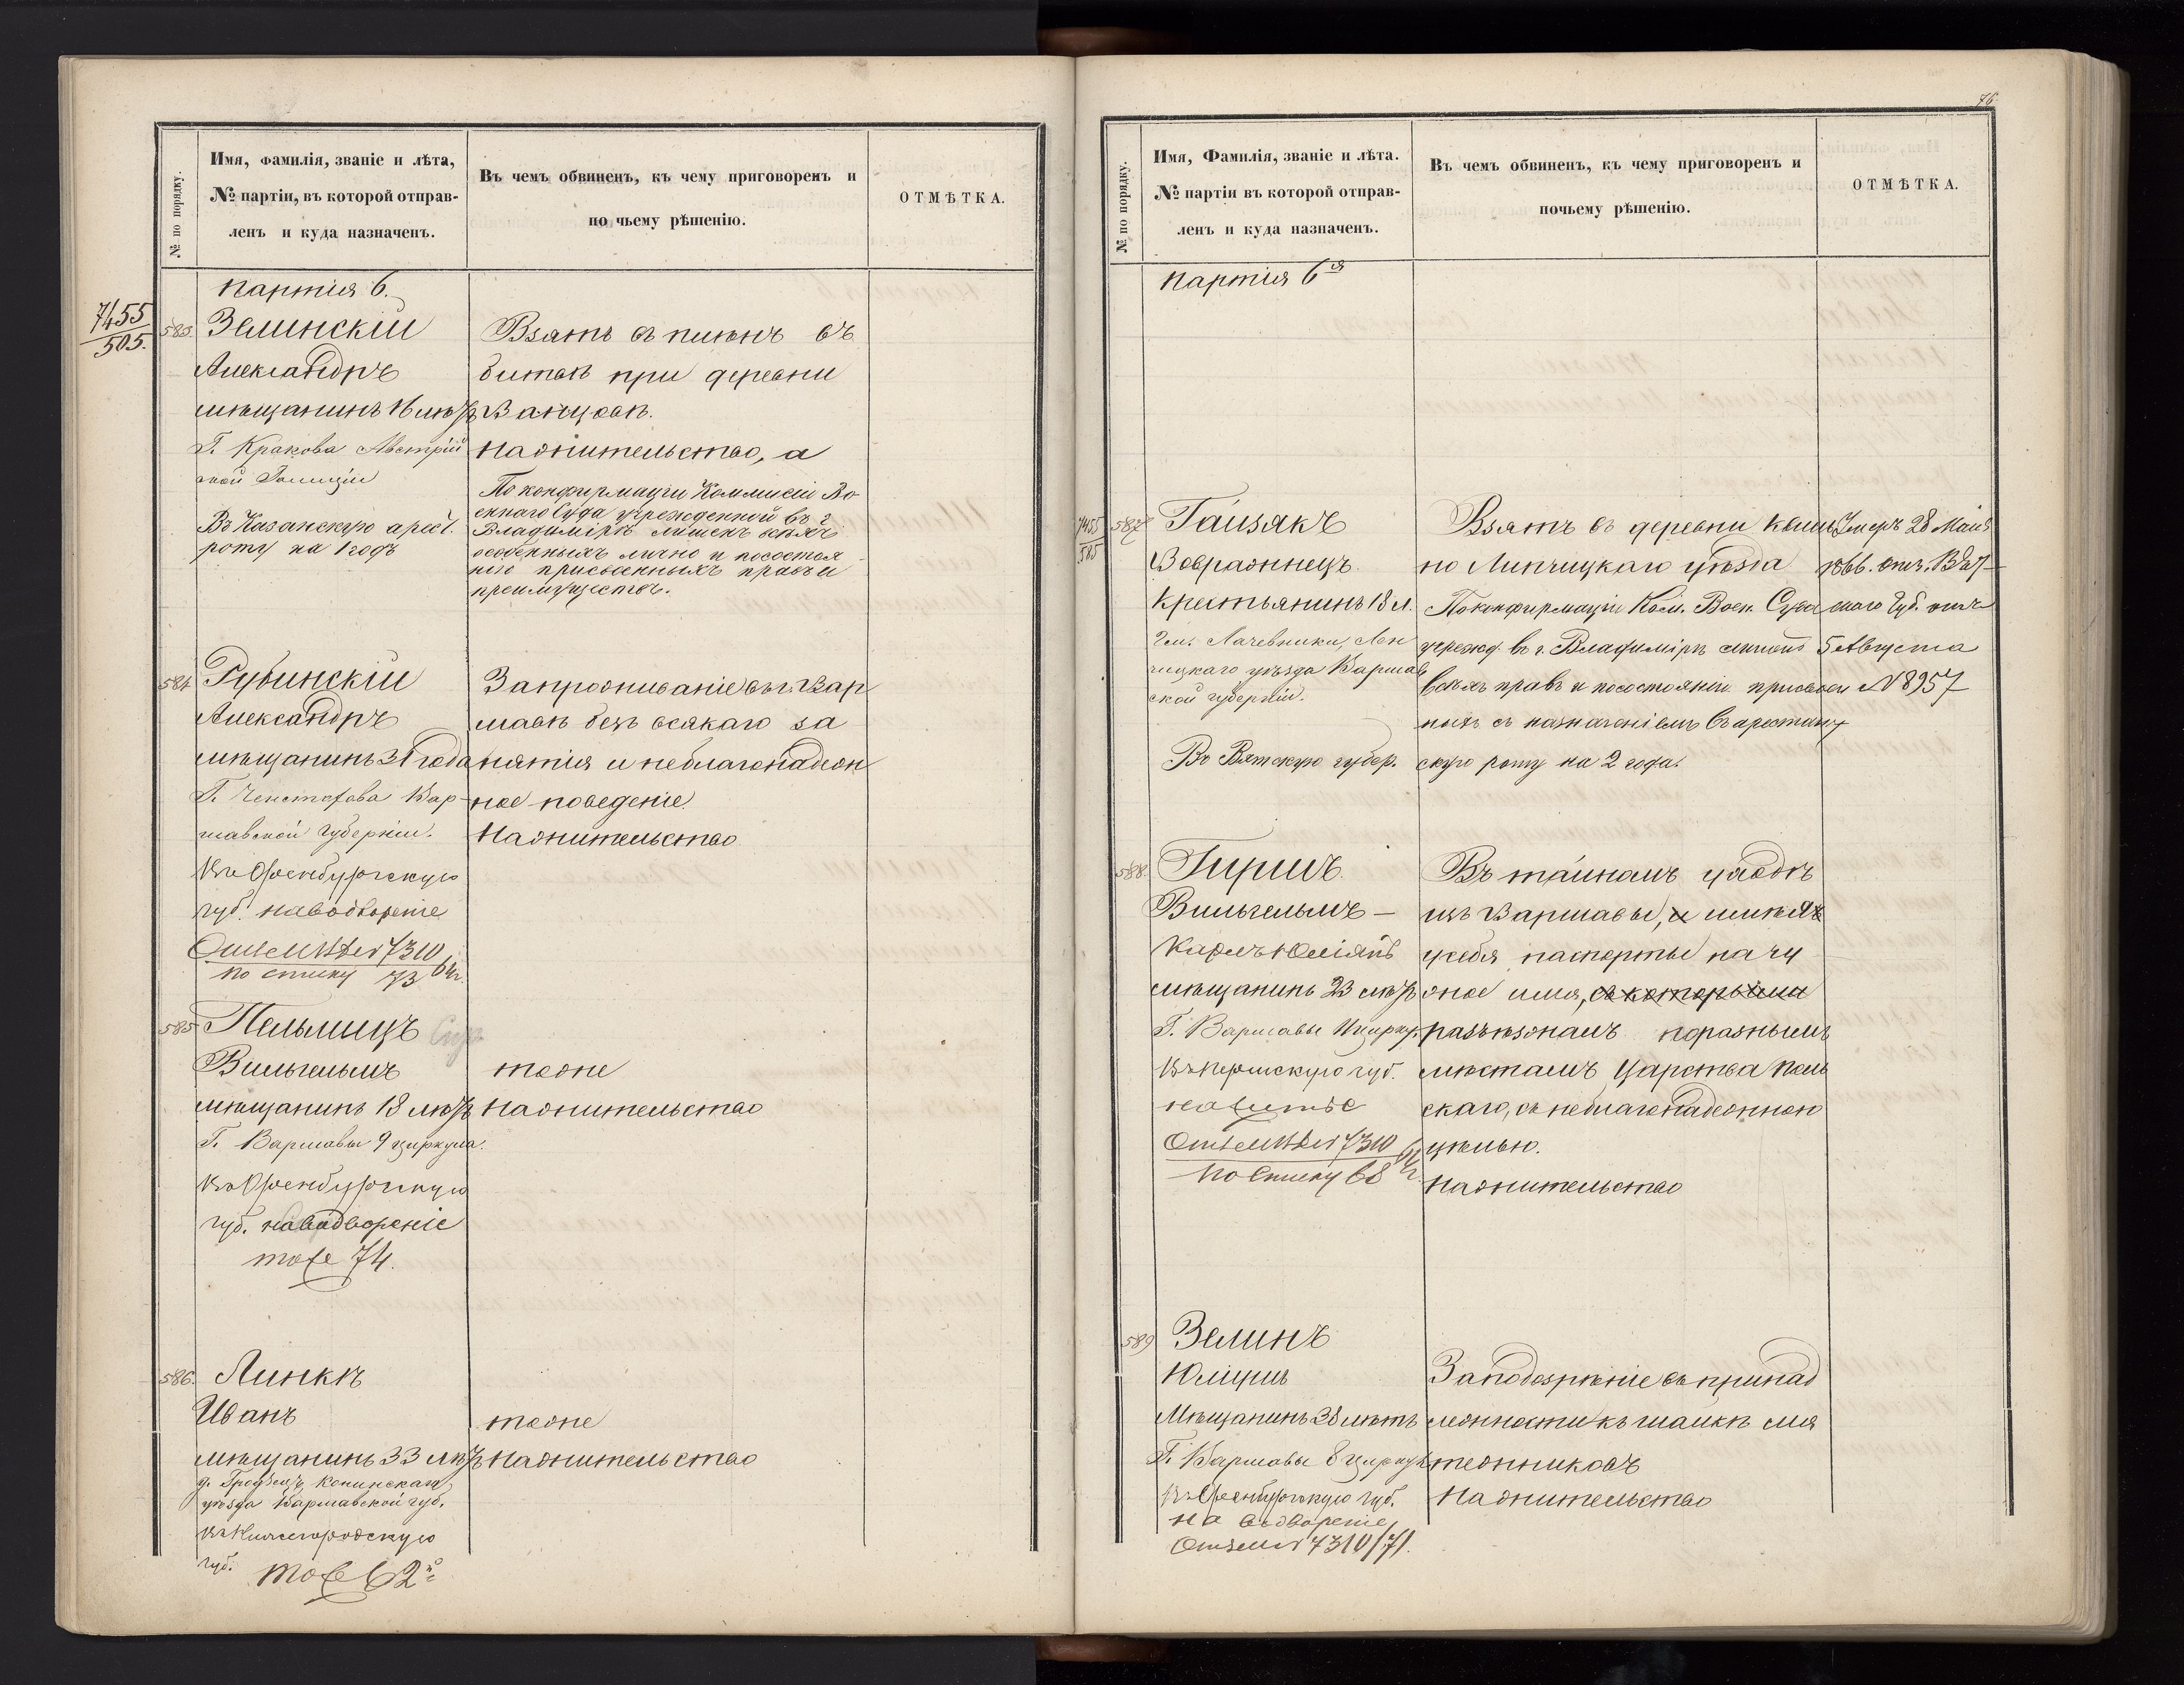 № по порядку.
Имя, Фамилія, званіе и лѣта,
№ партіи, въ которой отправ-
ленъ и куда назначенъ.
Въ чемъ обвиненъ, къ чему приговоренъ и
по чьему рѣшенію.
ОТМѢТКА.
партія 6.
7455
505.
583.
Зелинскій
Александръ
мѣщанинъ 16 лѣтъ
Г. Кракова Австрій
ской Галиціи
Въ Казанскую арест.
роту на 1 годъ
Взятъ въ плѣнъ въ
битвѣ при деревни
Ванцовѣ.
На жительство, а
По конфирмаціи Коммисіи Во-
еннаго Суда учрежденной въ г.
Владимірѣ лишенъ всѣхъ
особенныхъ лично и по состоя
нію присвоенныхъ правъ и
преимуществъ.
584
Рубинскій
Александръ
мѣщанинъ 31 года
Г. Ченстохова Вар-
шавской губерніи.
Въ Оренбургскую
губ. на водвореніе
Отзем № 7310
по списку 73
За проживаніе въ г. Вар
шавѣ безъ всякаго за
нятія и неблагонадеж
ное поведеніе.
На жительство
585
Пельмицъ
Вильгельмъ
мѣщанинъ 18 лѣтъ
Г. Варшавы 9 циркула.
Въ Оренбургскую
губ. на водвореніе
тоже 74.
тоже
на жительство
586.
Линкѣ
Иванъ
мѣщанинъ 33 лѣтъ
д. Гродзецъ Конинскаго
уѣзда Варшавской губ.
Въ Нижегородскую
губ. тоже 62
тоже
на жительство
76
№ по порядку.
Имя, Фамилія, званіе и лѣта.
№ партіи въ которой отправ-
ленъ и куда назначенъ.
Въ чемъ обвиненъ, къ чему приговоренъ и
почьему рѣшенію.
ОТМѢТКА.
партія 6я
7455
585
587
Гайзакъ
Вавржинецъ
Крестьянинъ 18 л.
Лен
чицкаго уѣзда Варшав
ской губерніи.
Въ Вятскую губер.
Взятъ въ деревни
но Линчицкаго уѣзда
По конфирмаціи Ком. Воен. Суда
учрежд. въ г. Владимірѣ лишенъ
всѣхъ правъ и по состоянію присвоен
ныхъ съ назначеніемъ въ арестант
скую роту на 2 года.
Умеръ 28 Маія
1866. отн. Вят-
скаго Губ. отъ
5 Августа
№ 8957
588.
Гиршъ
Вильгельмъ –
Карлъ Юліянъ
мѣщанинъ 23 лѣтъ
Г. Варшавы
Въ Пермскую губ.
на житье
Отзем № 7310
по списку 68
Въ тайномъ уходѣ
изъ Варшавы, и имѣлъ
у себя паспорты на чу
жое имя, съ которыми
разъѣзжалъ по разнымъ
мѣстамъ Царства Поль
скаго, съ неблагонадежною
цѣлью.
На жительство
589
Зелинъ
Юліушъ
Мѣщанинъ 38 лѣтъ
Г. Варшавы 8 циркул
Въ Оренбургскую губ.
на водвореніе
Отзем № 7310/71.
Заподозрѣніе въ принад
лежности къ шайкѣ мя
тежниковъ
На жительство